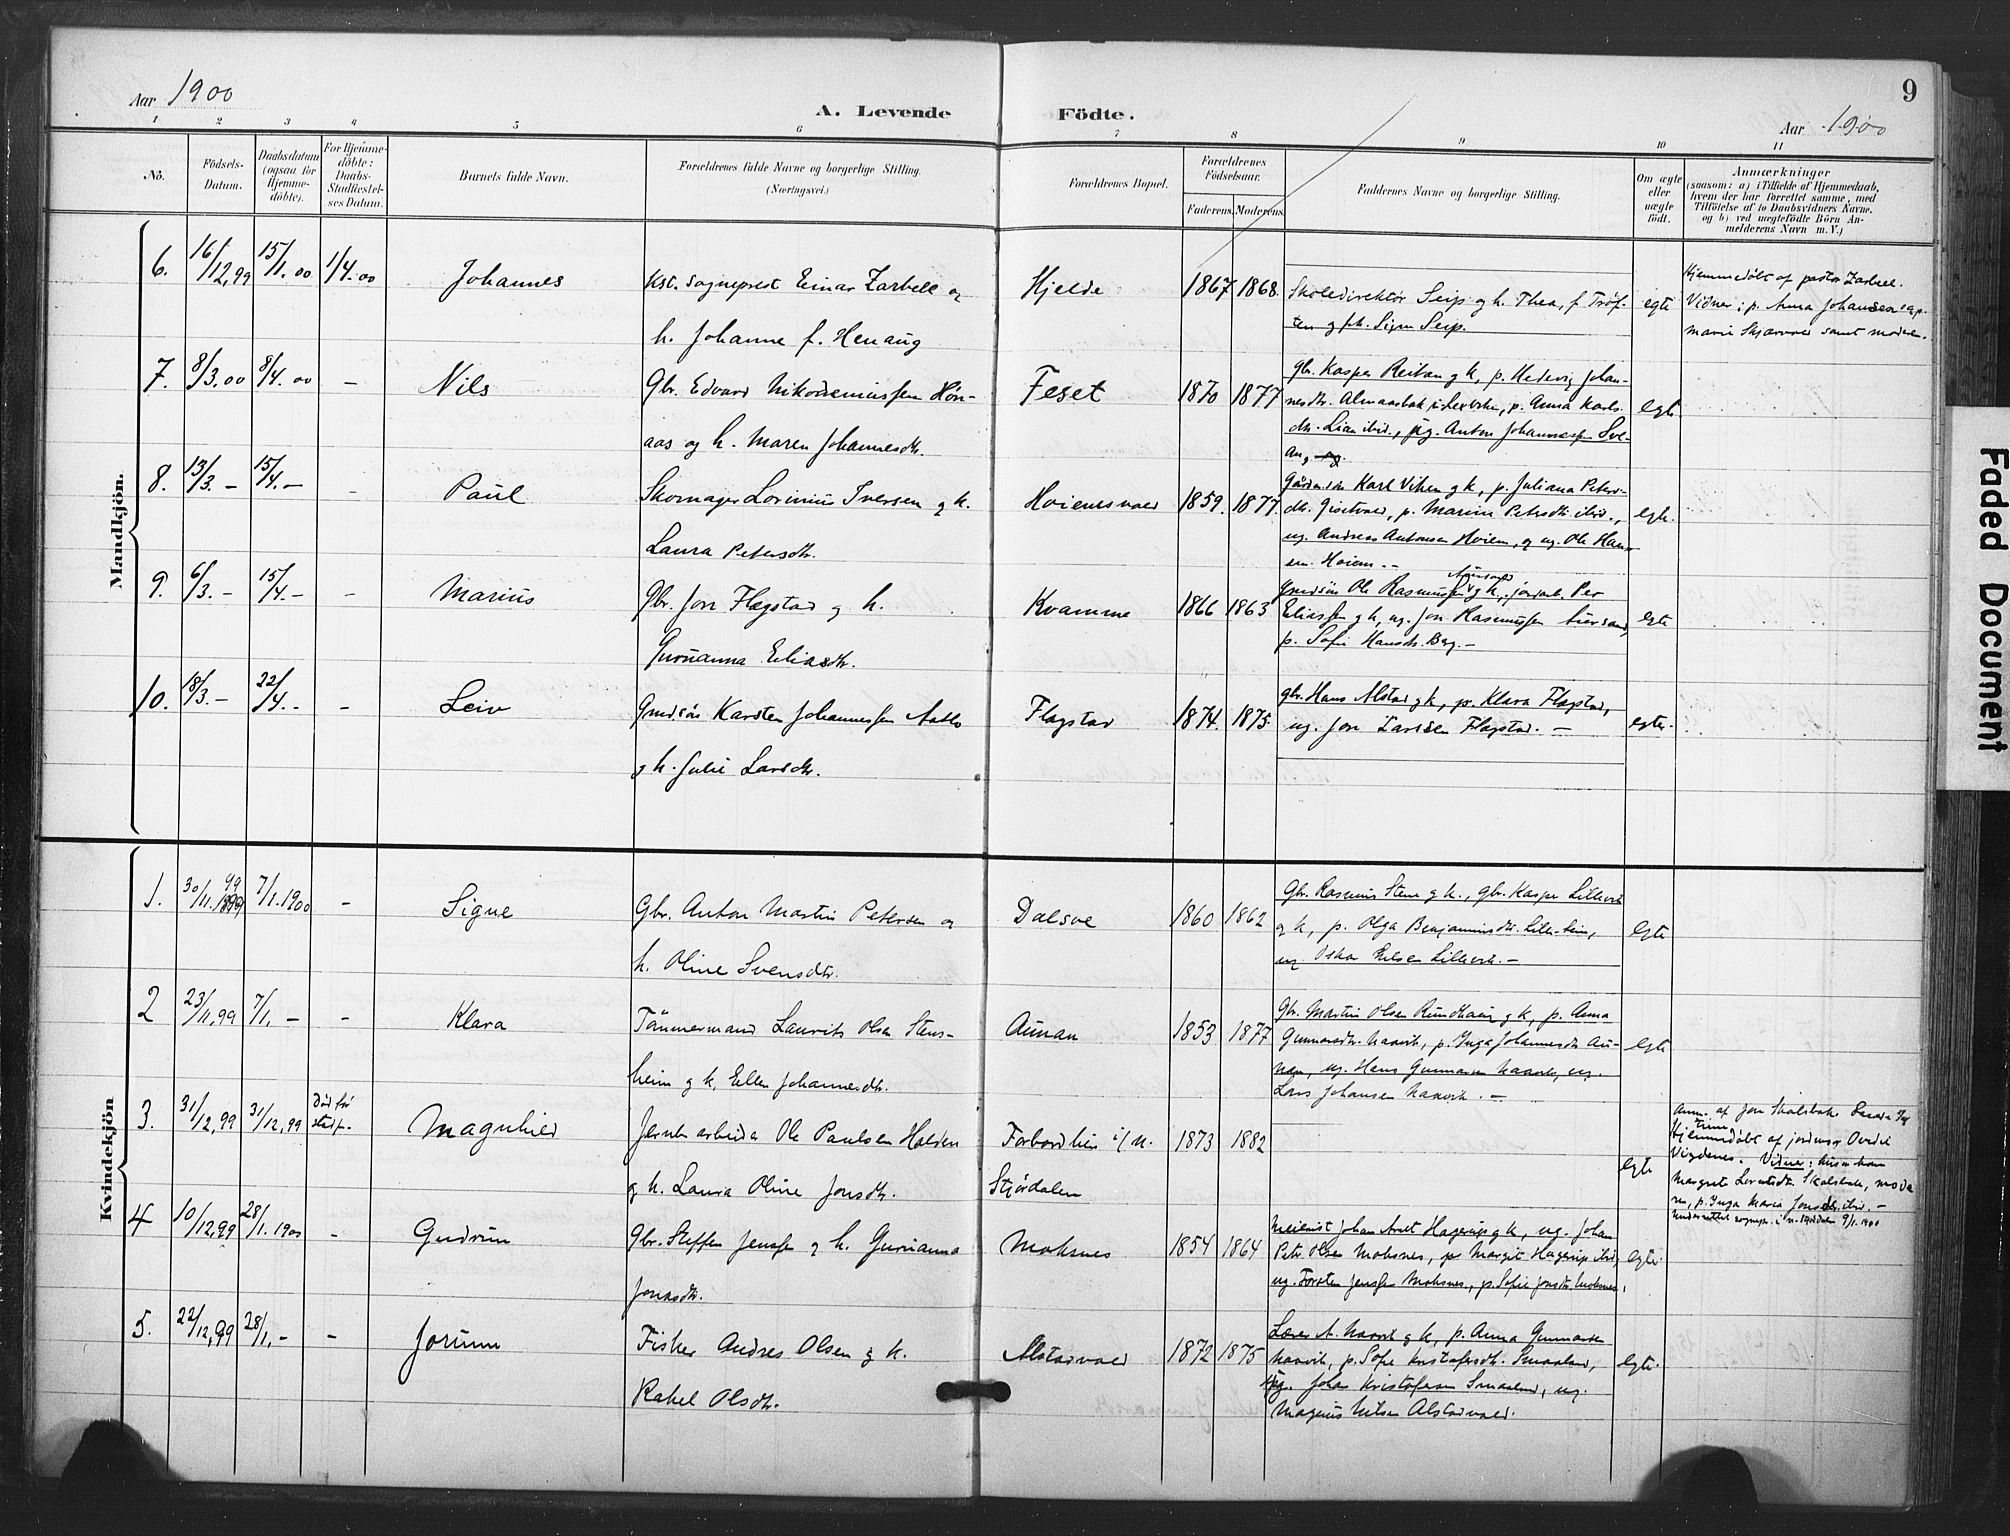 Aar 1900
A. Levende
Födte.
Aar 1900
9
1 2 3 4 5 6 7 8 9 10 11
No.
Födsels-
Datum.
Daabsdatum
(ogsaa for
Hjemme-
döbte).
For Hjemme-
döbte:
Daabs-
Stadfæstel-
ses Datum.
Barnets fulde Navn.
Forældrenes fulde Navne og borgerlige Stilling.
(Næringsvei.)
Forældrenes Bopæl.
Forældrenes
Födselsaar.
Faderens. Moderens.
Faddernes Navne og borgerlige Stilling.
Om ægte
eller
uægte
födt.
Anmærkninger
(saasom: a) i Tilfælde af Hjemmedaab,
hvem der har forrettet samme, med
Tilföielse af to Daabsvidners Navne,
og b) ved uægtefödte Börn An-
melderens Navn m. V.)
Mandkjön.
6. 16/12,99 15/1.00 1/4.00 Johannes
Kst. sogneprest Einar Zarbell og
h. Johanne f. Henaug
Hjelde 1867 1868
Skoledirektör Seip og h. Thea, f. Tröf-
ten og frk. Signe Seip.
egte
Hjemmedöbt af pastor Zarbell.
Vidner: p. Anna Johansen og p.
Marie Skjærvold samt moderen.
7. 8/3.00 8/4.00 - Nils
Gbr. Edvard Nikodemussen Hön-
aas og h. Maren Johannesdtr.
Feset 1870 1877
gbr. Kasper Reitan og k, p. Hedevig Johan-
nesdtr. Almaasbak i Lexviken, p. Anna Karls-
dtr. Lian ibid., ug. Anton Johannessen Sve-
an,
egte
8. 13/3.- 15/4.- - Paul
Skomager Lorinius Iversen og h.
Laura Petersdtr.
Hoienesvald 1859. 1877.
Gårdmdn Karl Viken og k, p. Juliana Peters-
dtr. Gisetvald, p. Marine Petersdtr. ibid.,
ug. Andreas Antonsen Hoiem, og ug. Ole Han-
sen Hoiem. -
egte.
9. 6/3.- 15/4.- - Marius
Gbr. Jon Flegstad og h.
Gurianna Eliasdtr.
Kvamme 1866 1863
Gmdsön Ole Rasmussen og k, jordarb. Per
Eliassen og k, ug. Jon Rasmussen
p. Sofie Hansdtr. Berg. -
egte
10. 18/3.- 22/4.- - Leiv
Gmdsön Karsten Johannessen
og h. Julie Larsdtr.
Flagstad 1874. 1875.
gbr. Hans Alstad og k, p. Klara Flagstad,
ug. Jon Larsen Flagstad. -
egte.
Kvindekjön
1. 30/11.1899 99 7/1.1900 - Signe
Gbr. Anton Martin Petersen og
h. Oline Svensdtr.
Dalsve 1860 1862
Gbr. Rasmus Stene og k., gbr. Kasper Lillevik
og k, p. Olga Benjaminsdtr.
ug. Nilsen Lillevik. -
egte
2 23/11,99 7/1.- - Klara
Tömmermand Laurits Olsen Stens-
heim og h, Ellen Johannesdtr.
Aunan 1853 1877
Gbr. Martin Olsen Rundhaug og k, p. Anna
Gunnarsdtr. Naavik, p. Inga Johannesdtr. Au-
nan, ug. Hans Gunnarsen Naavik, ug.
Lars Johansen Naavik. -
egte
3. 31/12,99 31/12,99 Död för
stadf. Magnhild
Jernbanearbeider Ole Paulsen Halden
og h. Laura Oline Jonsdtr.
Forbordlien i/ N.
Stjördalen 1873 1882
egte
Anm. af Jon Skalsbak.
Hjemmedöbt af jordmor Ovidie
Vigdenes. Vidner:
Margrete Skalsbak, mode-
ren, p. Inga Maria Jonsdtr. ibid. -
Underrettet sognepr. i N. Stjördalen 9/1.1900
4 10/12,99 28/1.1900 - Gudrun
Gbr. Steffen Jenssen og h. Gurianna
Jonasdtr.
Moksnes 1854 1864
Meierist Johan Arnt Hagerup og k, ug. Johan
Peter Olsen Moksnes, p. Margit Hagerup ibid,
ug. Torsten Jenssen Moksnes, p. Sofie Jonsdtr. Moksnes.
egte.
5. 22/12,99 28/1.- - Jorunn
Fisker Andres Olsen og h.
Rakel Olsdtr.
Alstadvald 1872 1875
Lærer A. Naavik og k, p. Anna Gunnarsdtr.
Naavik, p. Sofie Kristofersdtr. Smaaland,
ug. Johan Kristofersen Smaaland, ug.
Magnus Nilsen Alstadvald.
egte.
Faded Document